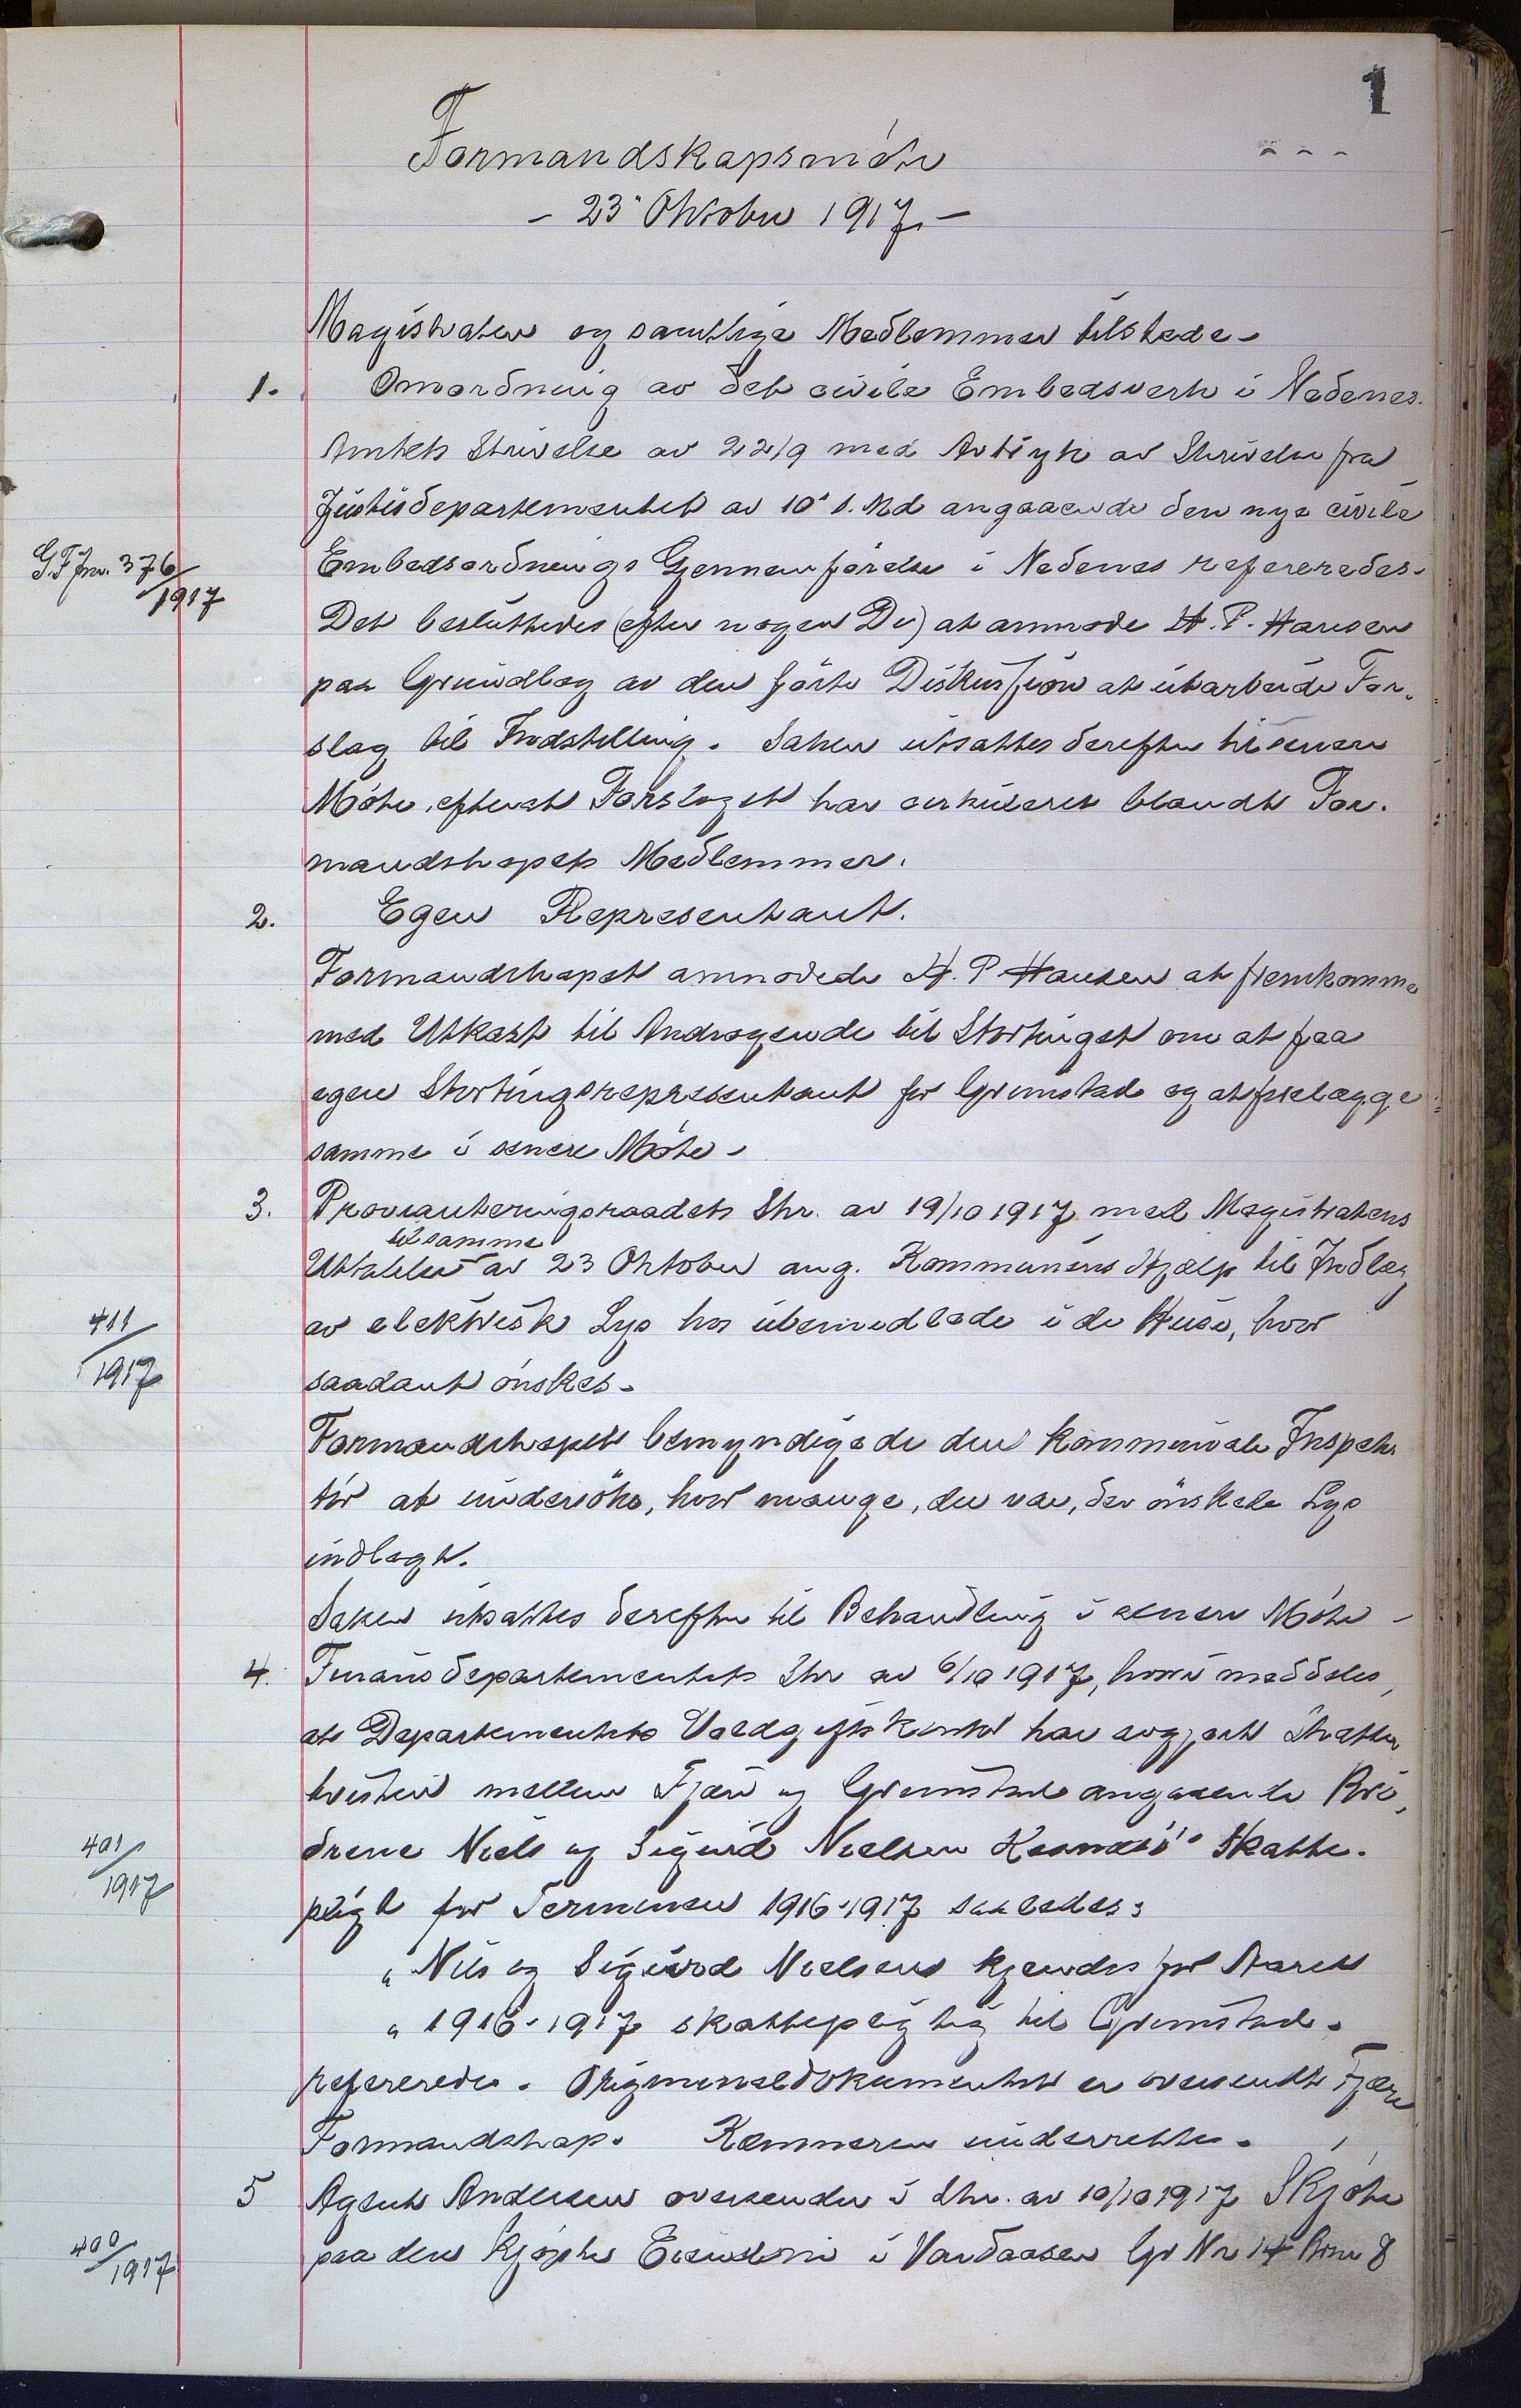 1
Formandskapsmöte
- 23' Oktober 1917. -
Magistraten og samtlige Medlemmer tilstede.
1. Omordning av det civile Embedsverk i Nedenes.
Amtets Skrivelse av 22/9 med Avtryk av Skrivelse fra
Justisdepartementet av 10' s. Md angaaende den nye civile
G.F. Jnr. 376/1917
Embedsordnings Gjennemförelse i Nedenes refereredes.
Det besluttedes (efter nogen Di) at anmode H. P. Hansen
paa Grundlag av den förte Diskussion at utarbeide For-
slag til Indstilling. Saken utsattes derefter til senere
Möte, efterat Forslaget har cirkuleret blandt For-
mandskapets Medlemmer.
2. Egen Representant.
Formandskapet anmodede H. P Hansen at fremkomme
med Utkast til Andragende til Stortinget om at faa
egen Stortingsrepresentant for Grimstad og at frelægge
samme i senere Möte.
3. Provianteringsraadets Skr. av 19/10 1917 med Magistratens
til samme
Uttalelse av 23 Oktober ang. Kommunens Hjælp til Indlæg
av elektrisk Lys hos ubemedlede i de Huse, hvor
411/1917
saadant önskes.
Formandskapet bemyndigede den kommunale Inspek-
tör at undersöke, hvor mange, der var, der önskede Lys
indlagt.
Saken utsattes derefter til Behandling i senere Möte -
4. Finansdepartementets Skr av 6/10 1917, hvori meddeles,
at Departementets Voldgiftskontor har avgjort Skatte-
tvisten mellem Fjære og Grimstad angaaende Brö-
401/1917
drene Niels og Sigurd Nielsen Skatte-
pligt for Terminen 1916-1917 saaledes:
" Nils og Sigurd Nielsen kjendes for Aaret
" 1916-1917 skattepligtig til Grimstad.
refereredes. Originaldokumentet er oversendt Fjære
Formandskap. Kæmneren underrettes.
5 Agent Andersen oversender i Skr. av 10/10 1917 Skjöte
400/1917
paa den kjöpte Eiendom i Vardaasen Gr Nr 14 Brnr 8